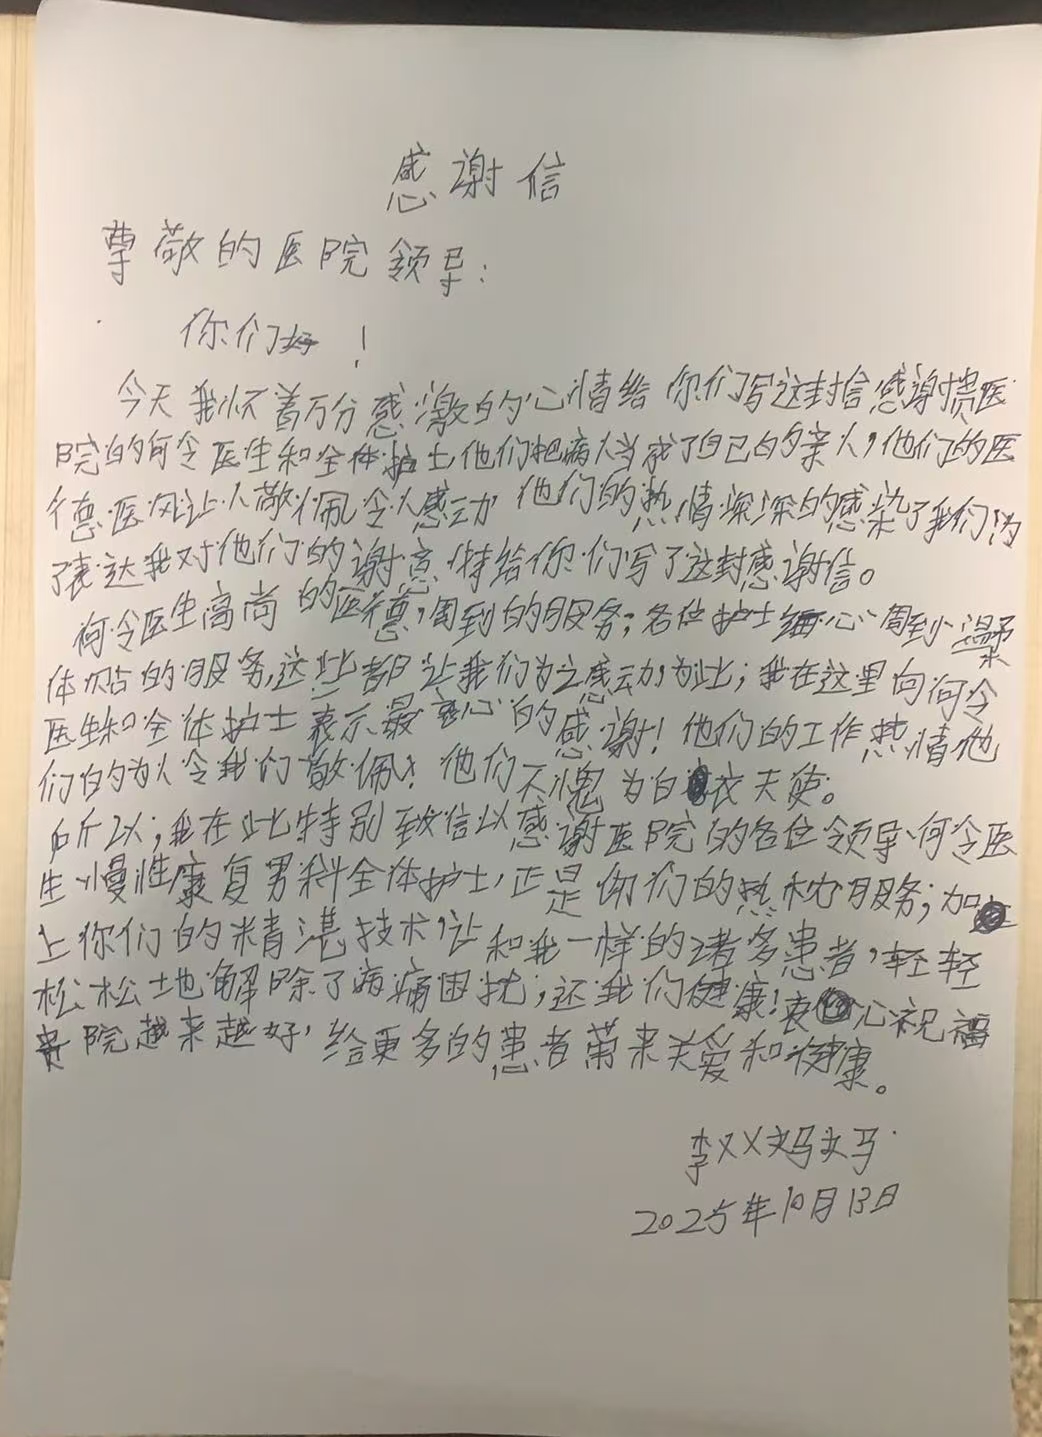 感谢信
尊敬的医院领导：
你们好！
今天我怀着万分感激的心情给你们写这封信感谢惯医
院的何令医生和全体护士他们把病人当成了自己的亲人，他们的医
德医风让人敬佩令人感动 他们的热情深深的感染了我们为
了表达我对他们的谢意，特给你们写了这封感谢信。
何令医生高尚的医德，周到的服务；各位护士细心周到温柔
体贴的服务，这些都让我们为之感动，为此；我在这里向何令
医生和全体护士表示最衷心的感谢！他们的工作热情他
们的为人令我们敬佩！他们不愧为白衣天使。
所以；我在此特别致信以感谢医院的各位领导、何令医
生、慢性康复男科全体护士，正是你们的热枕服务；加
上你们的精湛技术，让和我一样的诸多患者，轻轻
松松地解除了病痛困扰；还我们健康！衷心祝福
贵院越来越好，给更多的患者带来关爱和健康。
李XX妈妈
2025年10月13日